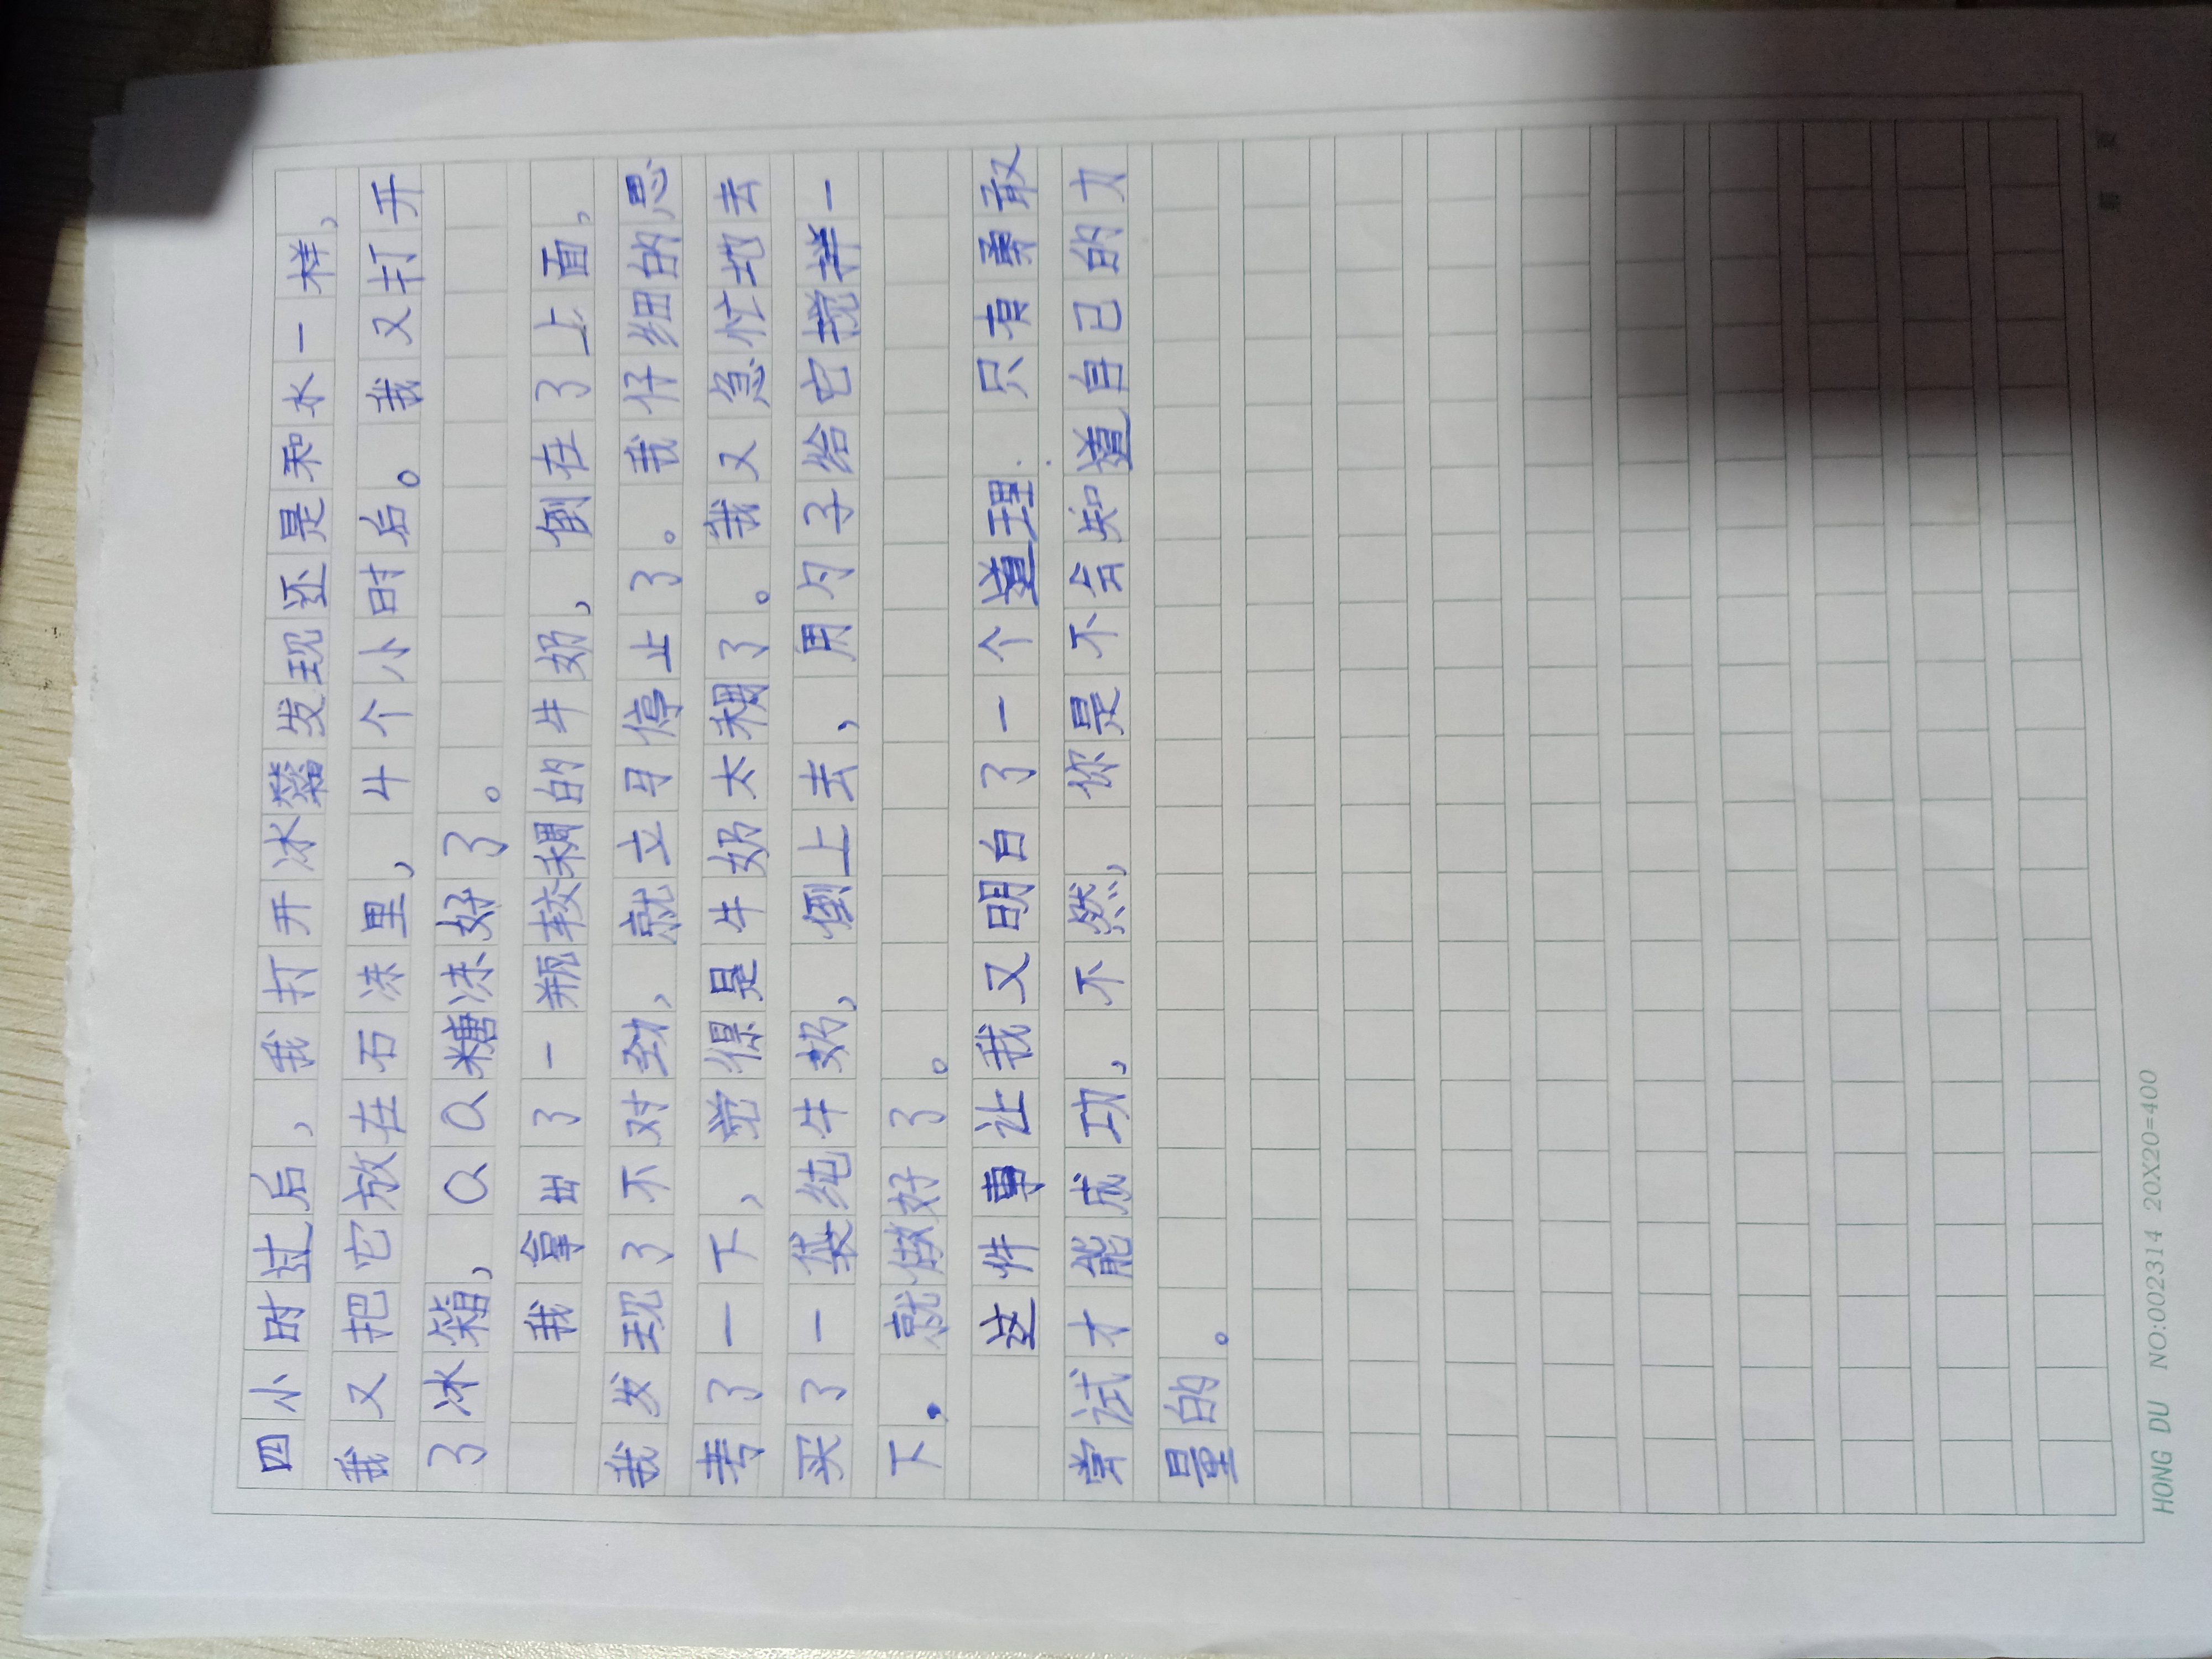 四小时过后，我打开冰箱发现还是和水一样，
我又把它放在石冻里，4个小时后。我又打开
了冰箱，QQ糖冻好了。
我拿出了一瓶较稠的牛奶，倒在了上面，
我发现了不对劲，就立马停止了。我仔细的思
考了一下，觉得是牛奶太稠了。我又急忙地去
买了一袋纯牛奶，倒上去，用勺子给它搅拌一
下，就做好了。
这件事让我又明白了一个道理.只有勇敢
尝试才能成功，不然，你是不会知道自己的力
量的。
HONG DU NO:002314 20X20=400